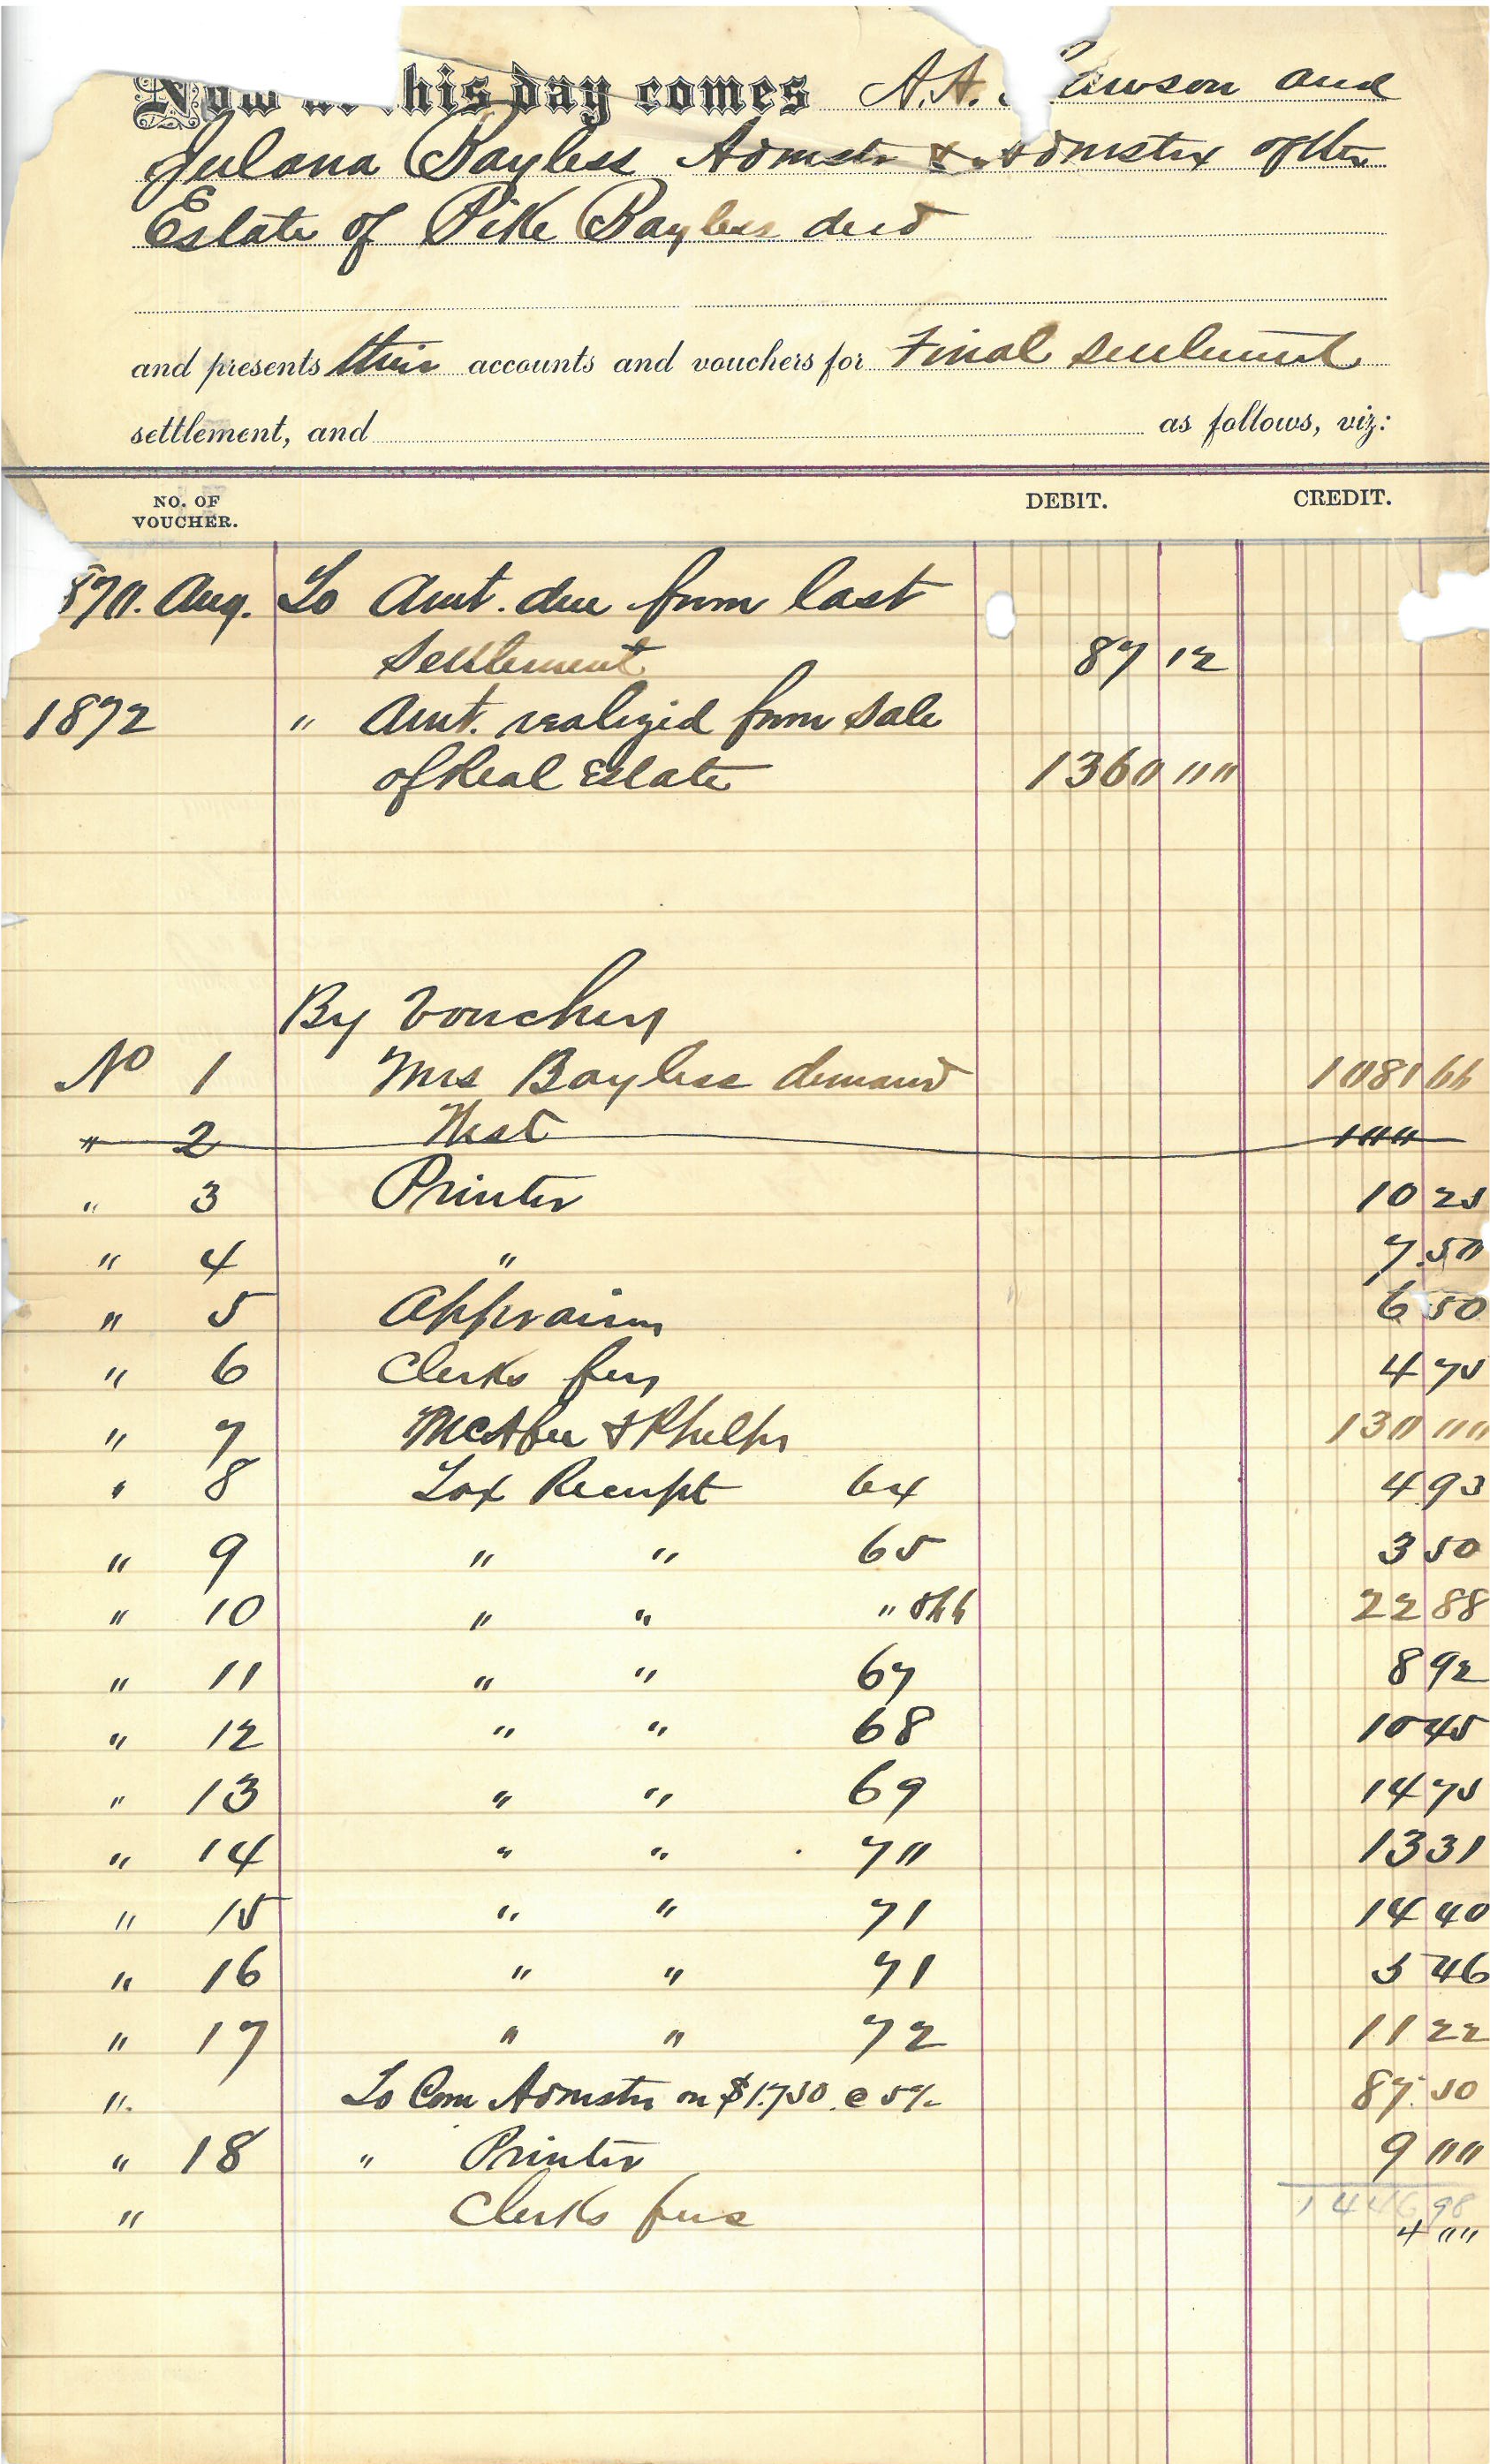 Now at this day comes A. A. Lawson and
Julana Bayless Admstr & Admstrx of the
Estate of Pike Bayless decd
and presents their accounts and vouchers for Final settlement
settlement, and as follows, viz:
NO. OF VOUCHER. DEBIT. CREDIT.
870. Aug. To Amt. due from last
Settlement 87 12
1872 " Amt. realized from sale
of Real Estate 1360 00
By Vouchers
No 1 Mrs Bayless demand 1081 66
" 2 West 100
" 3 Printer 10 25
" 4 " 7.50
" 5 Appraisers 6 50
" 6 Clerks fees 4 75
" 7 McAfee & Phelps 130 00
" 8 Tax Receipt 64 4 93
" 9 " " 65 3 50
" 10 " " " 66 22 88
" 11 " " 67 8 92
" 12 " " 68 10 45
" 13 " " 69 14 75
" 14 " " 70 13 31
" 15 " " 71 14 40
" 16 " " 71 5 46
" 17 " " 72 11 22
" To Com Admstr on $1.750. @ 5% 87.50
" 18 " Printer 9 00
1446 98
" Clerks fees 4 00